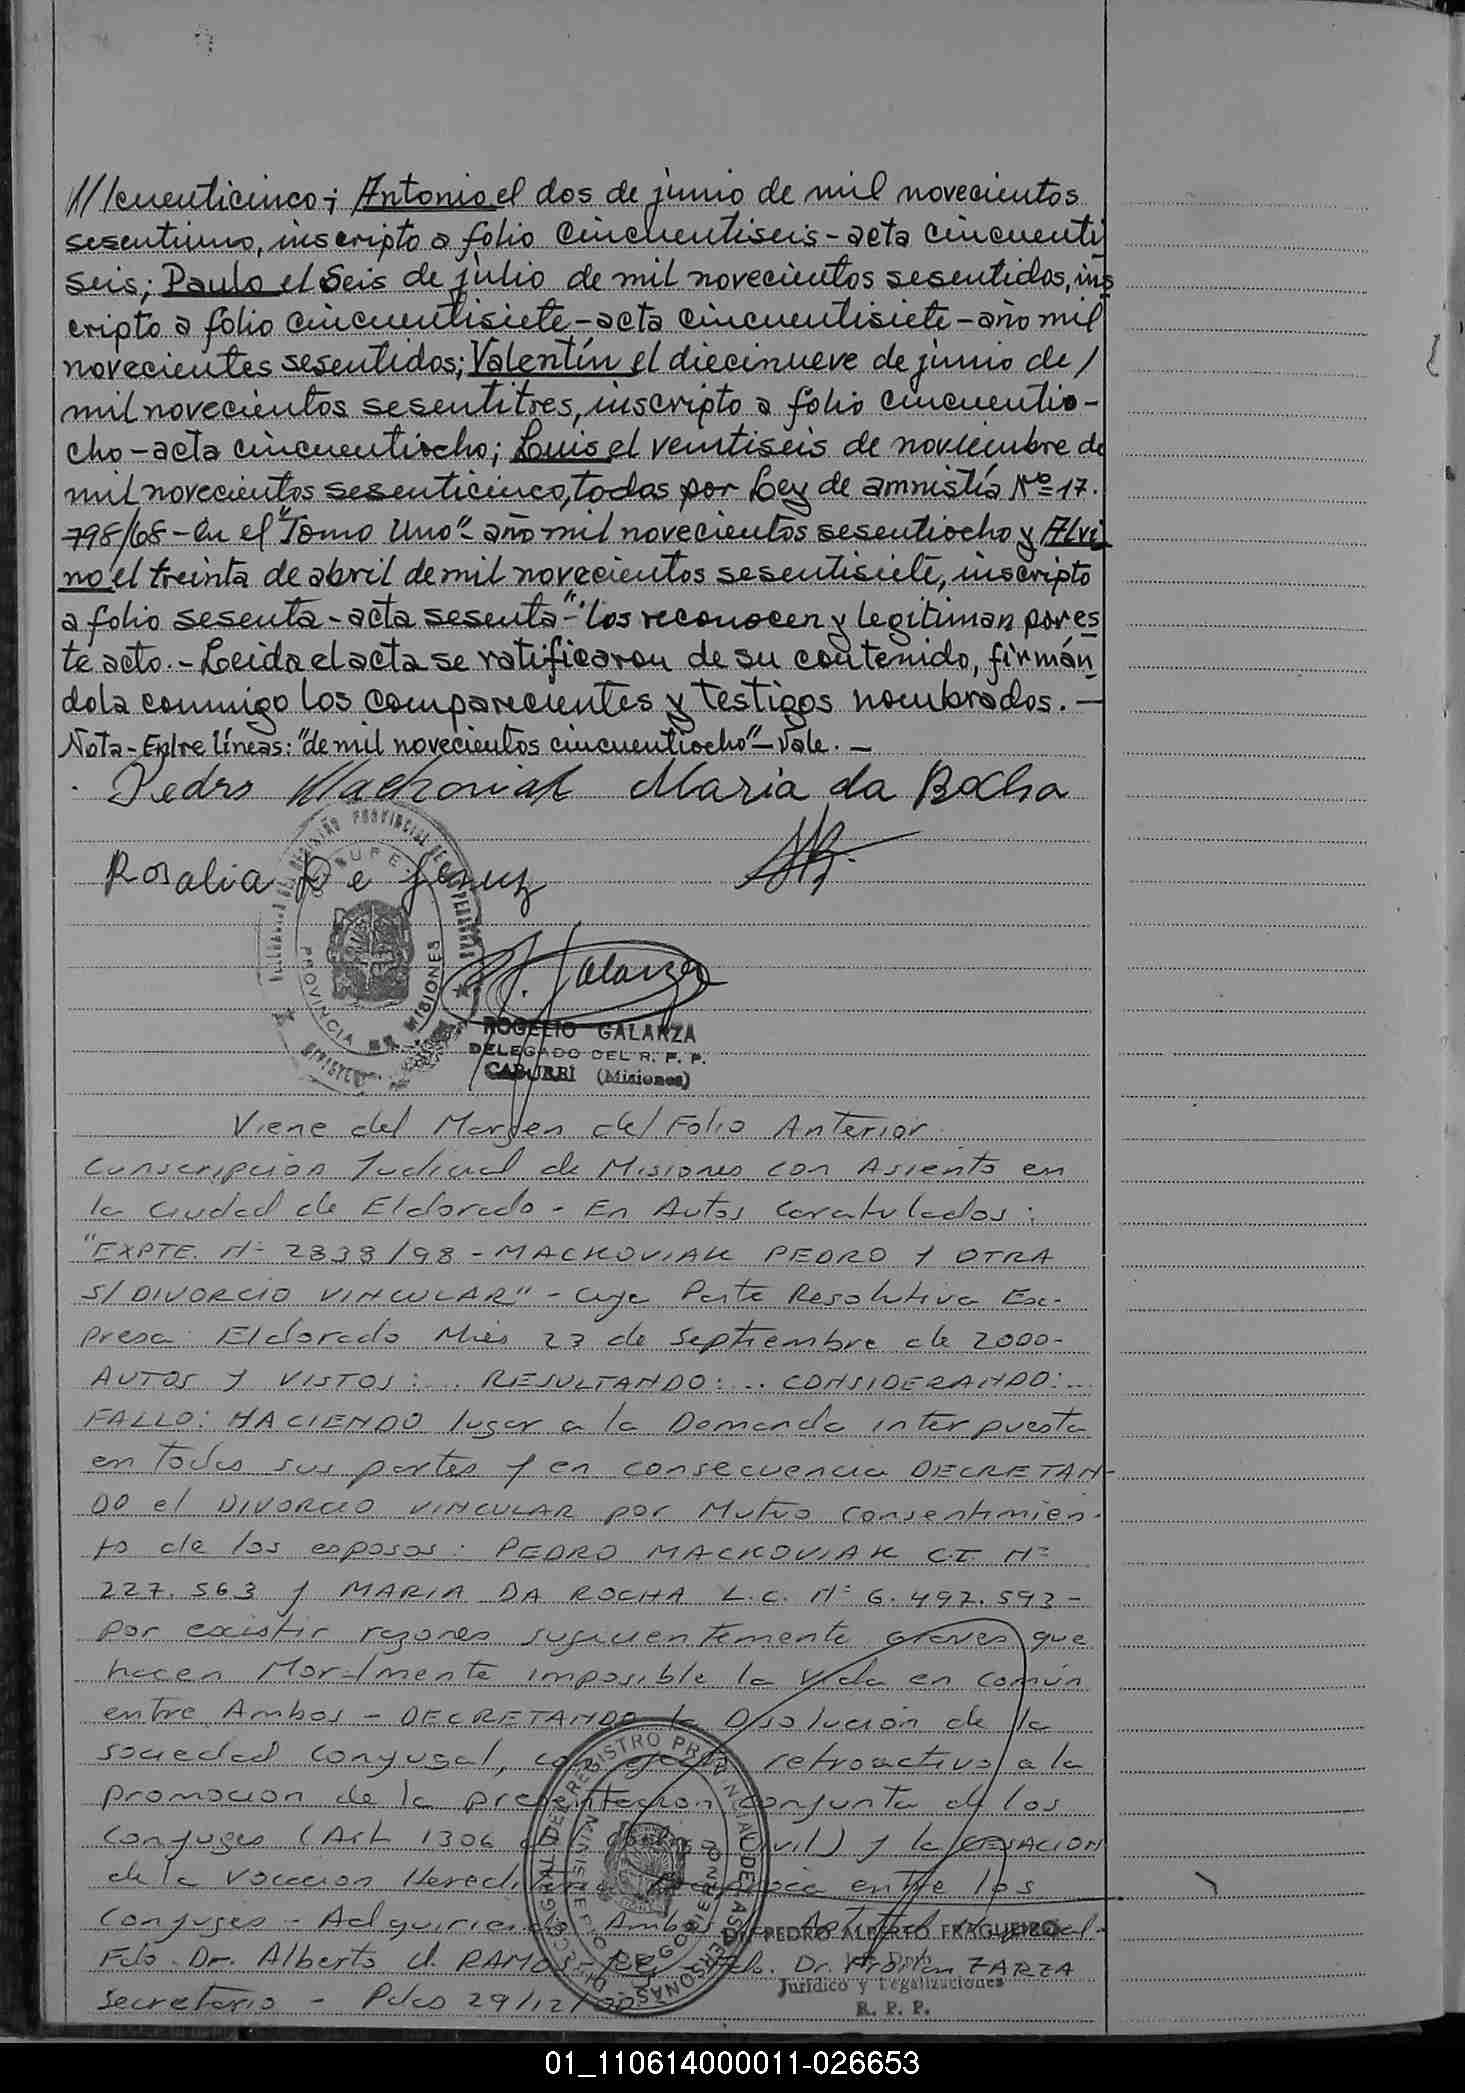 ///cuenticinco; Antonio el dos de junio de mil novecientos
sesentiuno, inscripto a folio cincuentiseis - acta cincuenti
seis; Paulo el seis de julio de mil novecientos sesentidos, ins
cripto a folio cincuentisiete - acta cincuentisiete - año mil
novecientos sesentidos; Valentín el diecinueve de junio de /
mil novecientos sesentitres, inscripto a folio cincuentio-
cho - acta cincuentiocho; Luis el veintiseis de noviembre de
mil novecientos sesenticinco, todas por Ley de amnistía Nº 17.
798/68 - en el "Tomo Uno" - año mil novecientos sesentiocho y Alvi
no el treinta de abril de mil novecientos sesentisiete, inscripto
a folio sesenta - acta sesenta" - los reconocen y legitiman por es
te acto. - Leida el acta se ratificaron de su contenido, firmán
dola conmigo los comparecientes y testigos nombrados. -
Nota - Entre líneas: "de mil novecientos cincuentiocho" - Vale. -
Pedro Mackoviak Maria da Rocha
Rosalia De Jesuz
R. Galarza
ROGELIO GALARZA
DELEGADO DEL R. P. P.
CABUREÍ (Misiones)
PROVINCIA DE MISIONES
Viene del Margen del Folio Anterior
Cunscripción Judicial de Misiones con Asiento en
la Ciudad de Eldorado - En Autos Caratulados:
"EXPTE. Nº 2838/98 - MACKOVIAK PEDRO Y OTRA
S/ DIVORCIO VINCULAR" - Cuya Parte Resolutiva Ex-
presa: Eldorado Mnes 23 de Septiembre de 2000-
AUTOS Y VISTOS: .. RESULTANDO: .. CONSIDERANDO: ..
FALLO: HACIENDO lugar a la Demanda interpuesta
en todas sus partes y en consecuencia DECRETAN-
DO el DIVORCIO VINCULAR por Mutuo Consentimien-
to de los esposos: PEDRO MACKOVIAK C.I. Nº
227.563 y MARIA DA ROCHA L.C. Nº 6.497.593 -
por existir razones suficientemente graves que
hacen Moralmente imposible la vida en común
entre Ambos - DECRETANDO la Disolución de la
sociedad conyugal, con efecto retroactivo a la
promoción de la presentación conjunta de los
conyuges (Art. 1306 del Código Civil) y la CESACION
de la vocacion Hereditaria Reciproca entre los
conyuges - Adquiriendo Ambos la Aptitud Nupcial -
Fdo. Dr. Alberto RAMOS - Juez - Fdo. Dr. ZARZA
Secretario - Pdas 29/12/00
DIRECC. GRAL. DEL REGISTRO PROVINCIAL DE LAS PERSONAS
MINISTERIO DE GOBIERNO
Dr. PEDRO ALBERTO FRAGUEIRO
Jurídico y Legalizaciones
R. P. P.
01_110614000011-026653